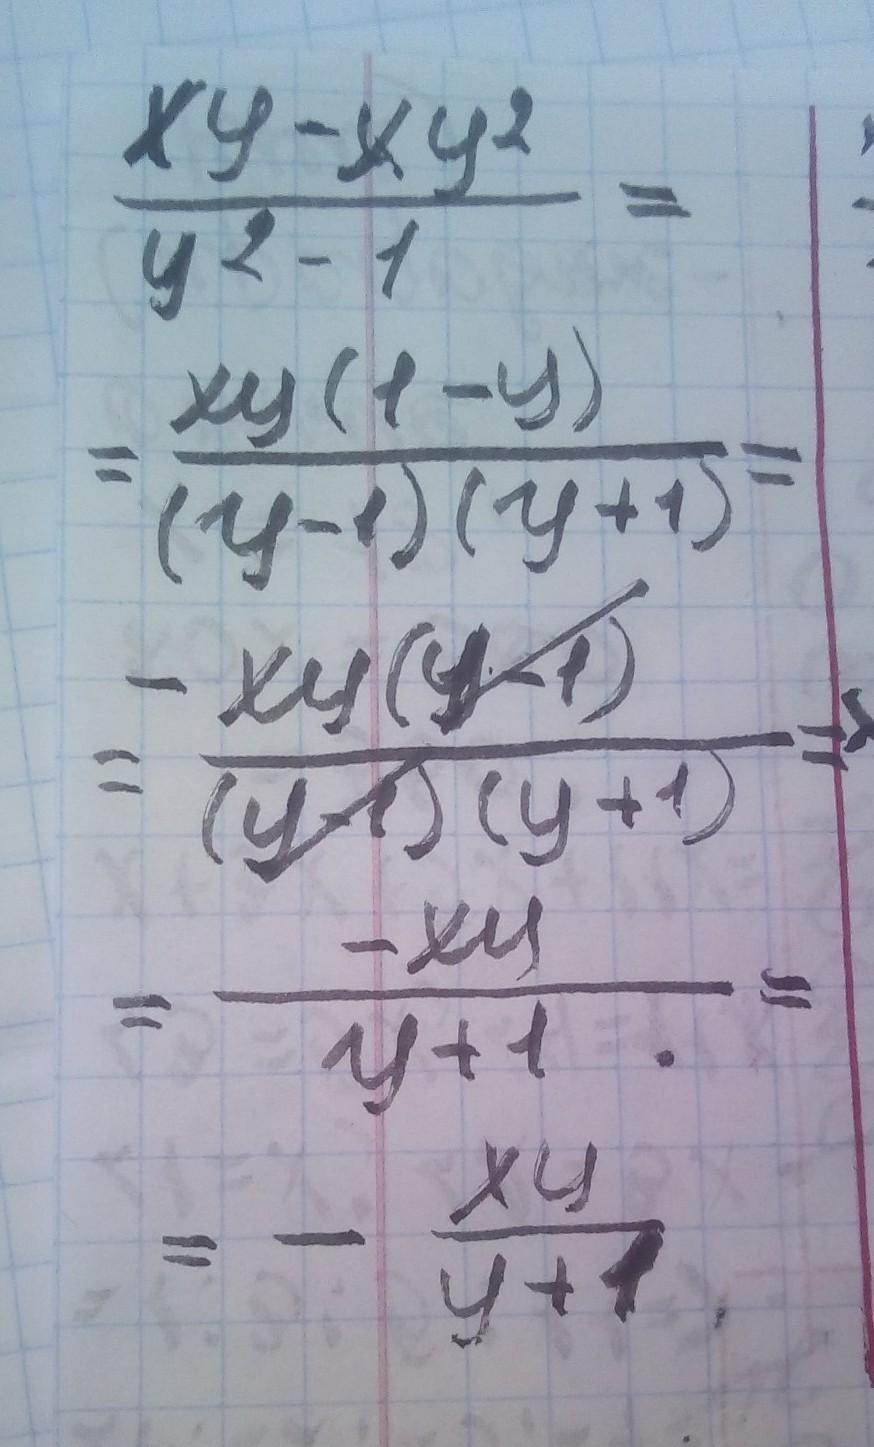 xy - xy² / y² - 1 =
= xy(1 - y) / (y - 1)(y + 1) =
= - xy(y - 1) / (y - 1)(y + 1) =
= -xy / y + 1 =
= - xy / y + 1